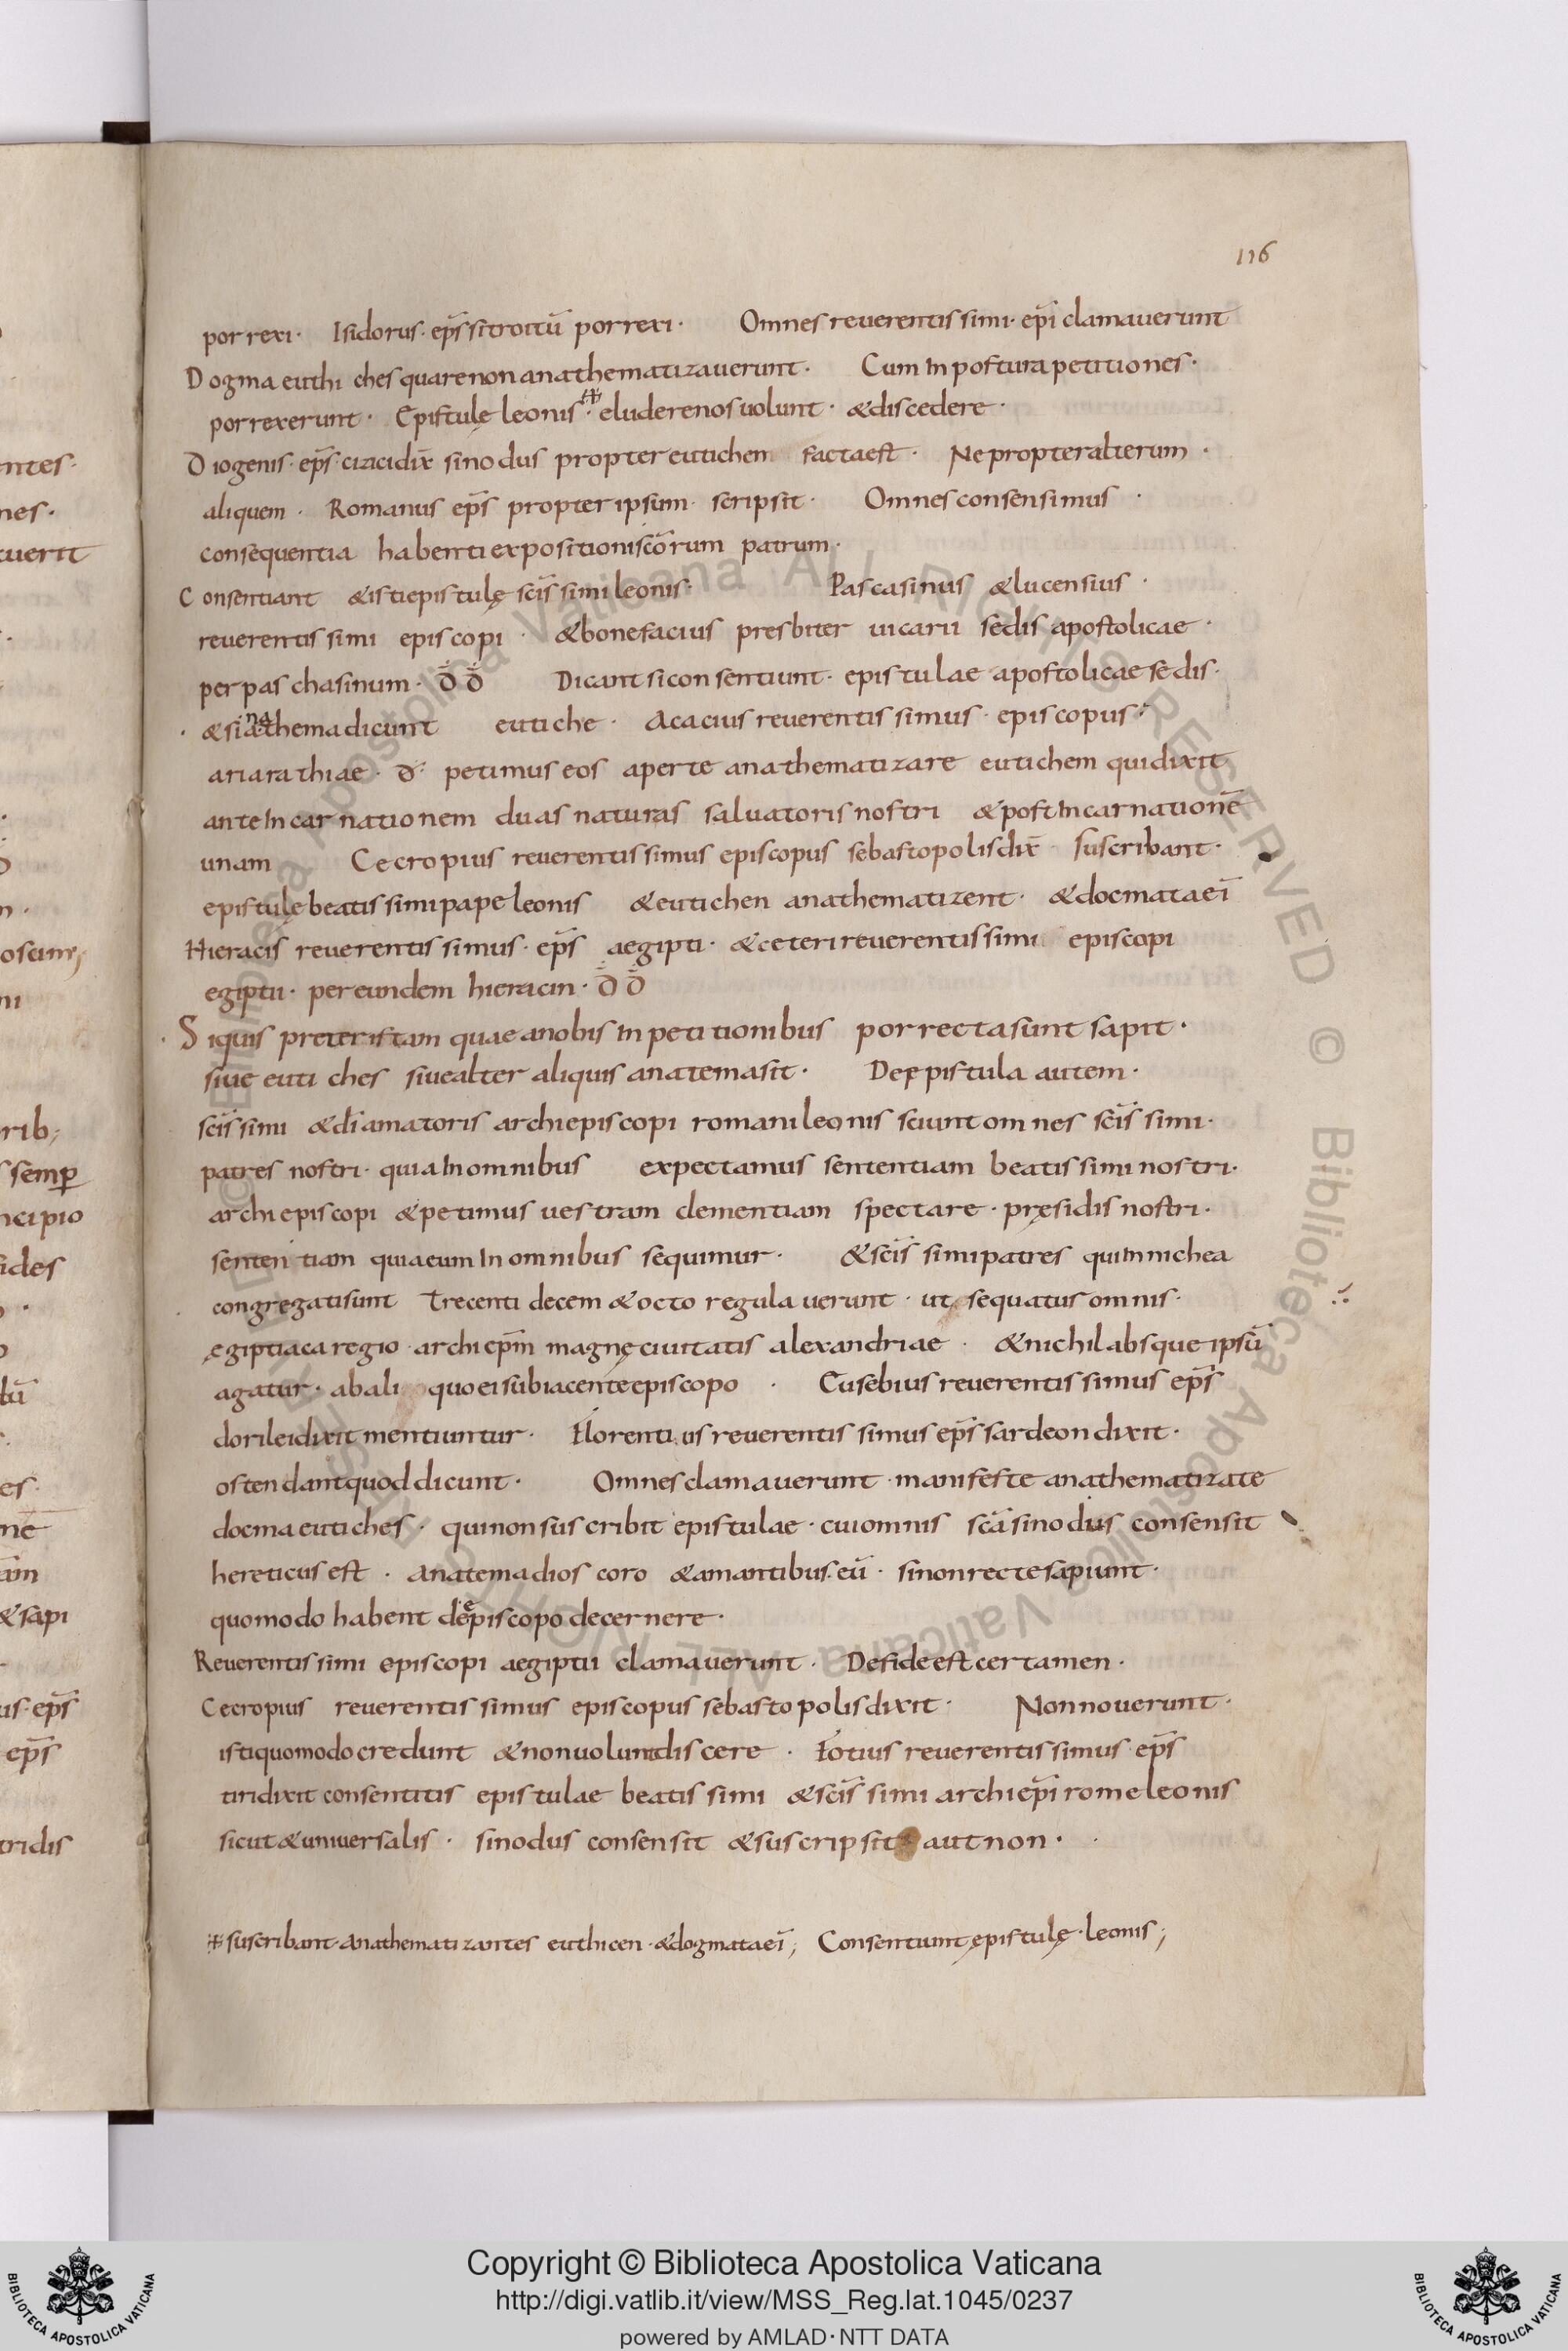 116
porrexi · Isidorus · ep̄s sitroitū porrexi · Omnes reuerentissimi · ep̄i clamauerunt
Dogma euthiches quare non anathematizauerunt · Cum Inpostura petitiones ·
porrexerunt · Epistulę leonis · eludere nos uolunt · & discedere ·
Diogenis · ep̄s · cizici dix̄ sinodus propter eutichem facta est · Ne propter alterum ·
aliquem · Romanus ep̄s propter ipsum · scripsit · Omnes consensimus ·
consequentia habenti expositioni sc̄orum patrum ·
Consentiant & isti epistulę sc̄issimi leonis · Pascasinus & lucensius ·
reuerentissimi episcopi · & bonefacius presbiter uicarii sedis apostolicae ·
per paschasinum · đđ Dicant si consentiunt · epistulae apostolicae sedis ·
· & si anathema dicunt eutiche · Acacius reuerentissimus · episcopus ·
ariarathiae · đ · petimus eos aperte anathematizare eutichem qui dixit
ante Incarnationem duas naturas saluatoris nostri & post Incarnationē
unam Cecropius reuerentissimus episcopus sebastopolis dix̄ suscribant ·
epistulę beatissimi pape leonis & eutichen anathematizent · & docmata ei
Hieracis reuerentissimus · ep̄s aegipti · & ceteri reuerentissimi episcopi
egiptii · per eundem hieracin · đđ
· Siquis preter istam quae a nobis In petitionibus porrecta sunt sapit ·
siue eutiches siue alter aliquis anatema sit · De epistula autem ·
sc̄issimi & dī amatoris archiepiscopi romani leonis sciunt omnes sc̄issimi ·
patres nostri · quia In omnibus expectamus sententiam beatissimi nostri ·
archiepiscopi & petimus uestram clementiam spectare · pręsidis nostri ·
sententiam quia eum In omnibus sequimur · & sc̄issimi patres qui In nichea
congregati sunt trecenti decem & octo regulauerunt · ut sequatus omnis ·
ęgiptiaca regio · archiep̄m magnę ciuitatis alexandriae · & nichil absque ipsū
agatur · ab ali quo ei subiacente episcopo · Eusebius reuerentissimus ep̄s
dorilei dixit mentiuntur · Florentius reuerentissimus ep̄s sardeon dixit ·
ostendant quod dicunt · Omnes clamauerunt · manifeste anathematizate
docma eutiches · qui non suscribit epistulae · cui omnis sc̄a sinodus consensit
hereticus est · Anatema dioscoro & amantibus · eū · si non recte sapiunt ·
quomodo habent de episcopo decernere ·
Reuerentissimi episcopi aegiptii clamauerunt · De fide est certamen ·
Cecropius reuerentissimus episcopus sebastopolis dixit · Non nouerunt ·
isti quomodo credunt & non uolunt discere · Fotius reuerentissimus · ep̄s
tiri dixit consentitis epistulae beatissimi & sc̄issimi archiep̄i rome leonis
sicut & uniuersalis · sinodus consensit & suscripsit aut non ·
suscribant · Anathematizantes euthicen · & dogmata ei; Consentiunt epistulę · leonis;
Copyright © Biblioteca Apostolica Vaticana
http://digi.vatlib.it/view/MSS_Reg.lat.1045/0237
powered by AMLAD·NTT DATA